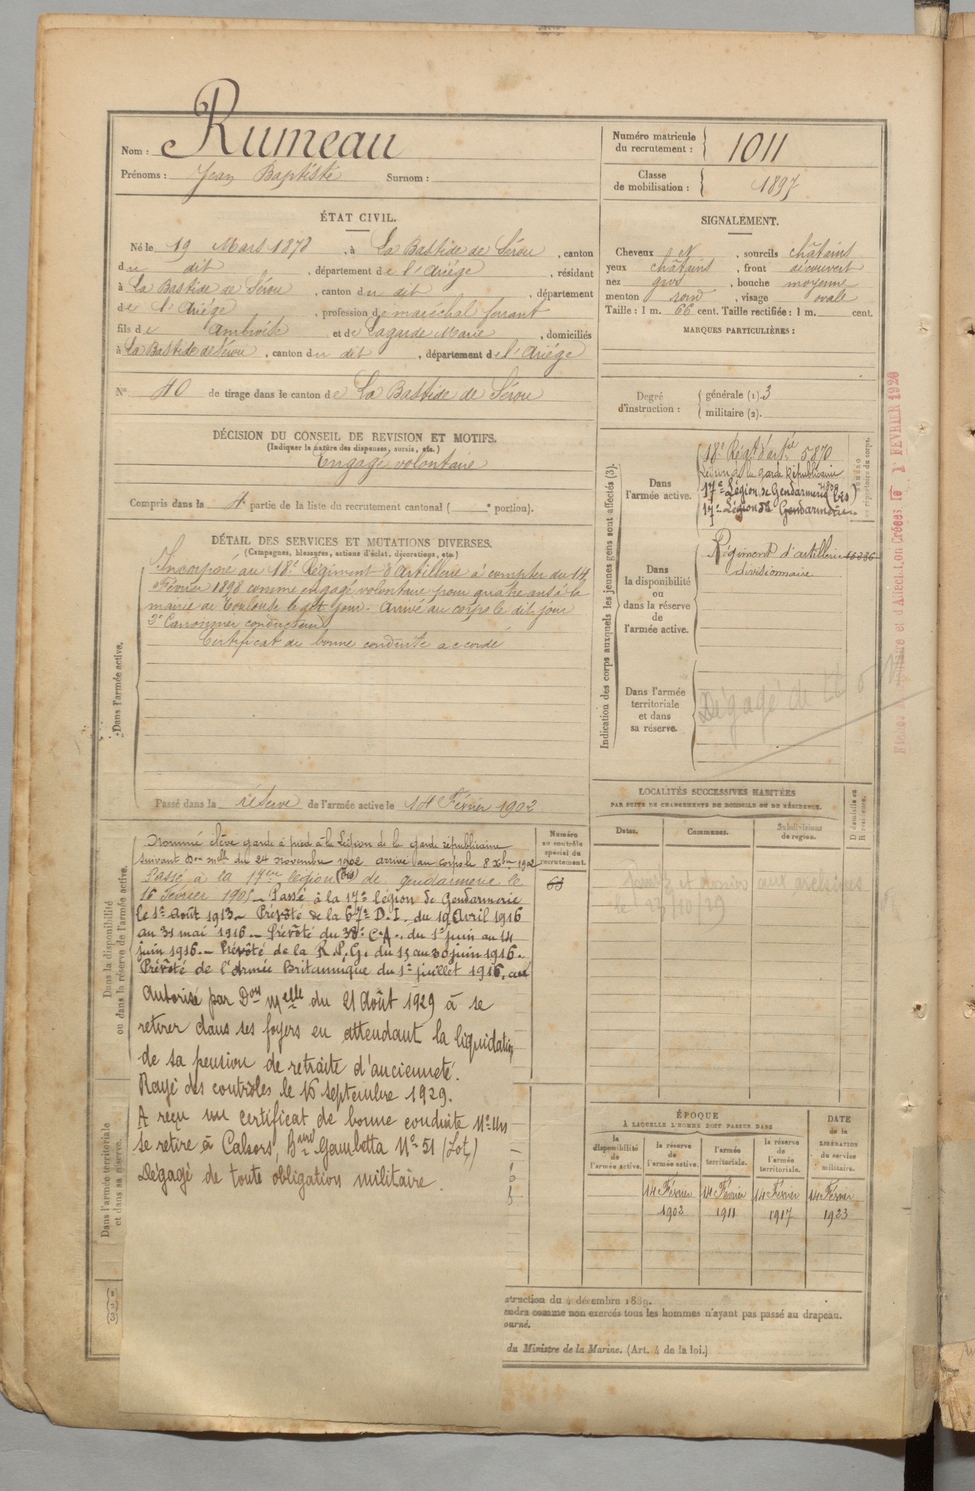 Nom : Rumeau
Prénoms : Jean Baptiste Surnom :
Numéro matricule du recrutement : 1011
Classe de mobilisation : 1897
ÉTAT CIVIL.
Né le 19 Mars 1878, à La Bastide de Sérou, canton
du dit, département de l'Ariège, résidant
à La Bastide de Sérou, canton du dit, département
de l'Ariège, profession de maréchal ferrant
fils de Ambroise et de Lagarde Marie, domiciliés
à La Bastide de Sérou, canton du dit, département de l'Ariège
N° 40 de tirage dans le canton de La Bastide de Sérou
SIGNALEMENT.
Cheveux et, sourcils châtains
yeux châtains, front découvert
nez gros, bouche moyenne
menton rond, visage ovale
Taille : 1 m. 66 cent. Taille rectifiée : 1 m. cent.
MARQUES PARTICULIÈRES :
Degré d'instruction : générale (1). 3
militaire (2).
DÉCISION DU CONSEIL DE REVISION ET MOTIFS.
(Indiquer la nature des dispenses, sursis, etc.)
Engagé volontaire
Compris dans la 4 partie de la liste du recrutement cantonal ( ° portion).
DÉTAIL DES SERVICES ET MUTATIONS DIVERSES.
(Campagnes, blessures, actions d'éclat, décorations, etc.)
Dans l'armée active.
Incorporé au 18e Régiment d'Artillerie à compter du 14
Février 1898 comme engagé volontaire pour quatre ans à la
mairie de Toulouse le dit jour. Arrivé au corps le dit jour
2e Canonnier conducteur
Certificat de bonne conduite accordé
Passé dans la réserve de l'armée active le 14 Février 1902
Dans la disponibilité
ou dans la réserve de l'armée active.
Nommé élève garde à pied à la Légion de la garde républicaine
suivant Don mlle du 24 novembre 1902 arrivé au corps le 8 Xbre 1902
Passé à la 17eme légion (bis) de gendarmerie le
16 Février 1905 – Passé à la 17e Légion de Gendarmerie
le 1er Août 1913 – Prévôté de la 67e D.I. du 19 Avril 1916
au 31 mai 1916 – Prévôté du 38e C.A. du 1er juin au 14
juin 1916 – Prévôté de la R.F.G. du 15 au 30 juin 1916 –
Prévôté de l'Armée Britannique du 1er juillet 1916 au
Autorisé par Don Melle du 21 Août 1929 à se
retirer dans ses foyers en attendant la liquidation
de sa pension de retraite d'ancienneté.
Rayé des contrôles le 16 septembre 1929.
A reçu un certificat de bonne conduite
Se retire à Cahors, Bard Gambetta N° 51 (Lot)
Dégagé de toute obligation militaire.
Dans l'armée territoriale
et dans sa réserve.
Numéro au contrôle spécial du recrutement.
68
Indication des corps auxquels les jeunes gens sont affectés (3).
Dans l'armée active.
18e Régt d'artie 5870
Légion de la garde Républicaine
17e Légion de Gendarmerie (bis)
17e Légion de Gendarmerie
NUMÉRO au répertoire du corps.
Dans la disponibilité ou dans la réserve de l'armée active.
Régiment d'artillerie
divisionnaire
Dans l'armée territoriale et dans sa réserve.
Dégagé de
LOCALITÉS SUCCESSIVES HABITÉES
PAR SUITE DE CHANGEMENTS DE DOMICILE OU DE RÉSIDENCE.
Dates. Communes. Subdivisions de région. D domicile ou R résidence.
aux archives
le 23/10/29
ÉPOQUE
À LAQUELLE L'HOMME DOIT PASSER DANS
DATE de la LIBÉRATION du service militaire.
la disponibilité de l'armée active. la réserve de l'armée active. l'armée territoriale. la réserve de l'armée territoriale.
14 Février 1902 14 Février 1911 14 Février 1917 14 Février 1923
struction du 4 décembre 1889.
endra comme non exercés tous les hommes n'ayant pas passé au drapeau.
ourné.
du Ministre de la Marine. (Art. 4 de la loi.)
1er FÉVRIER 1926